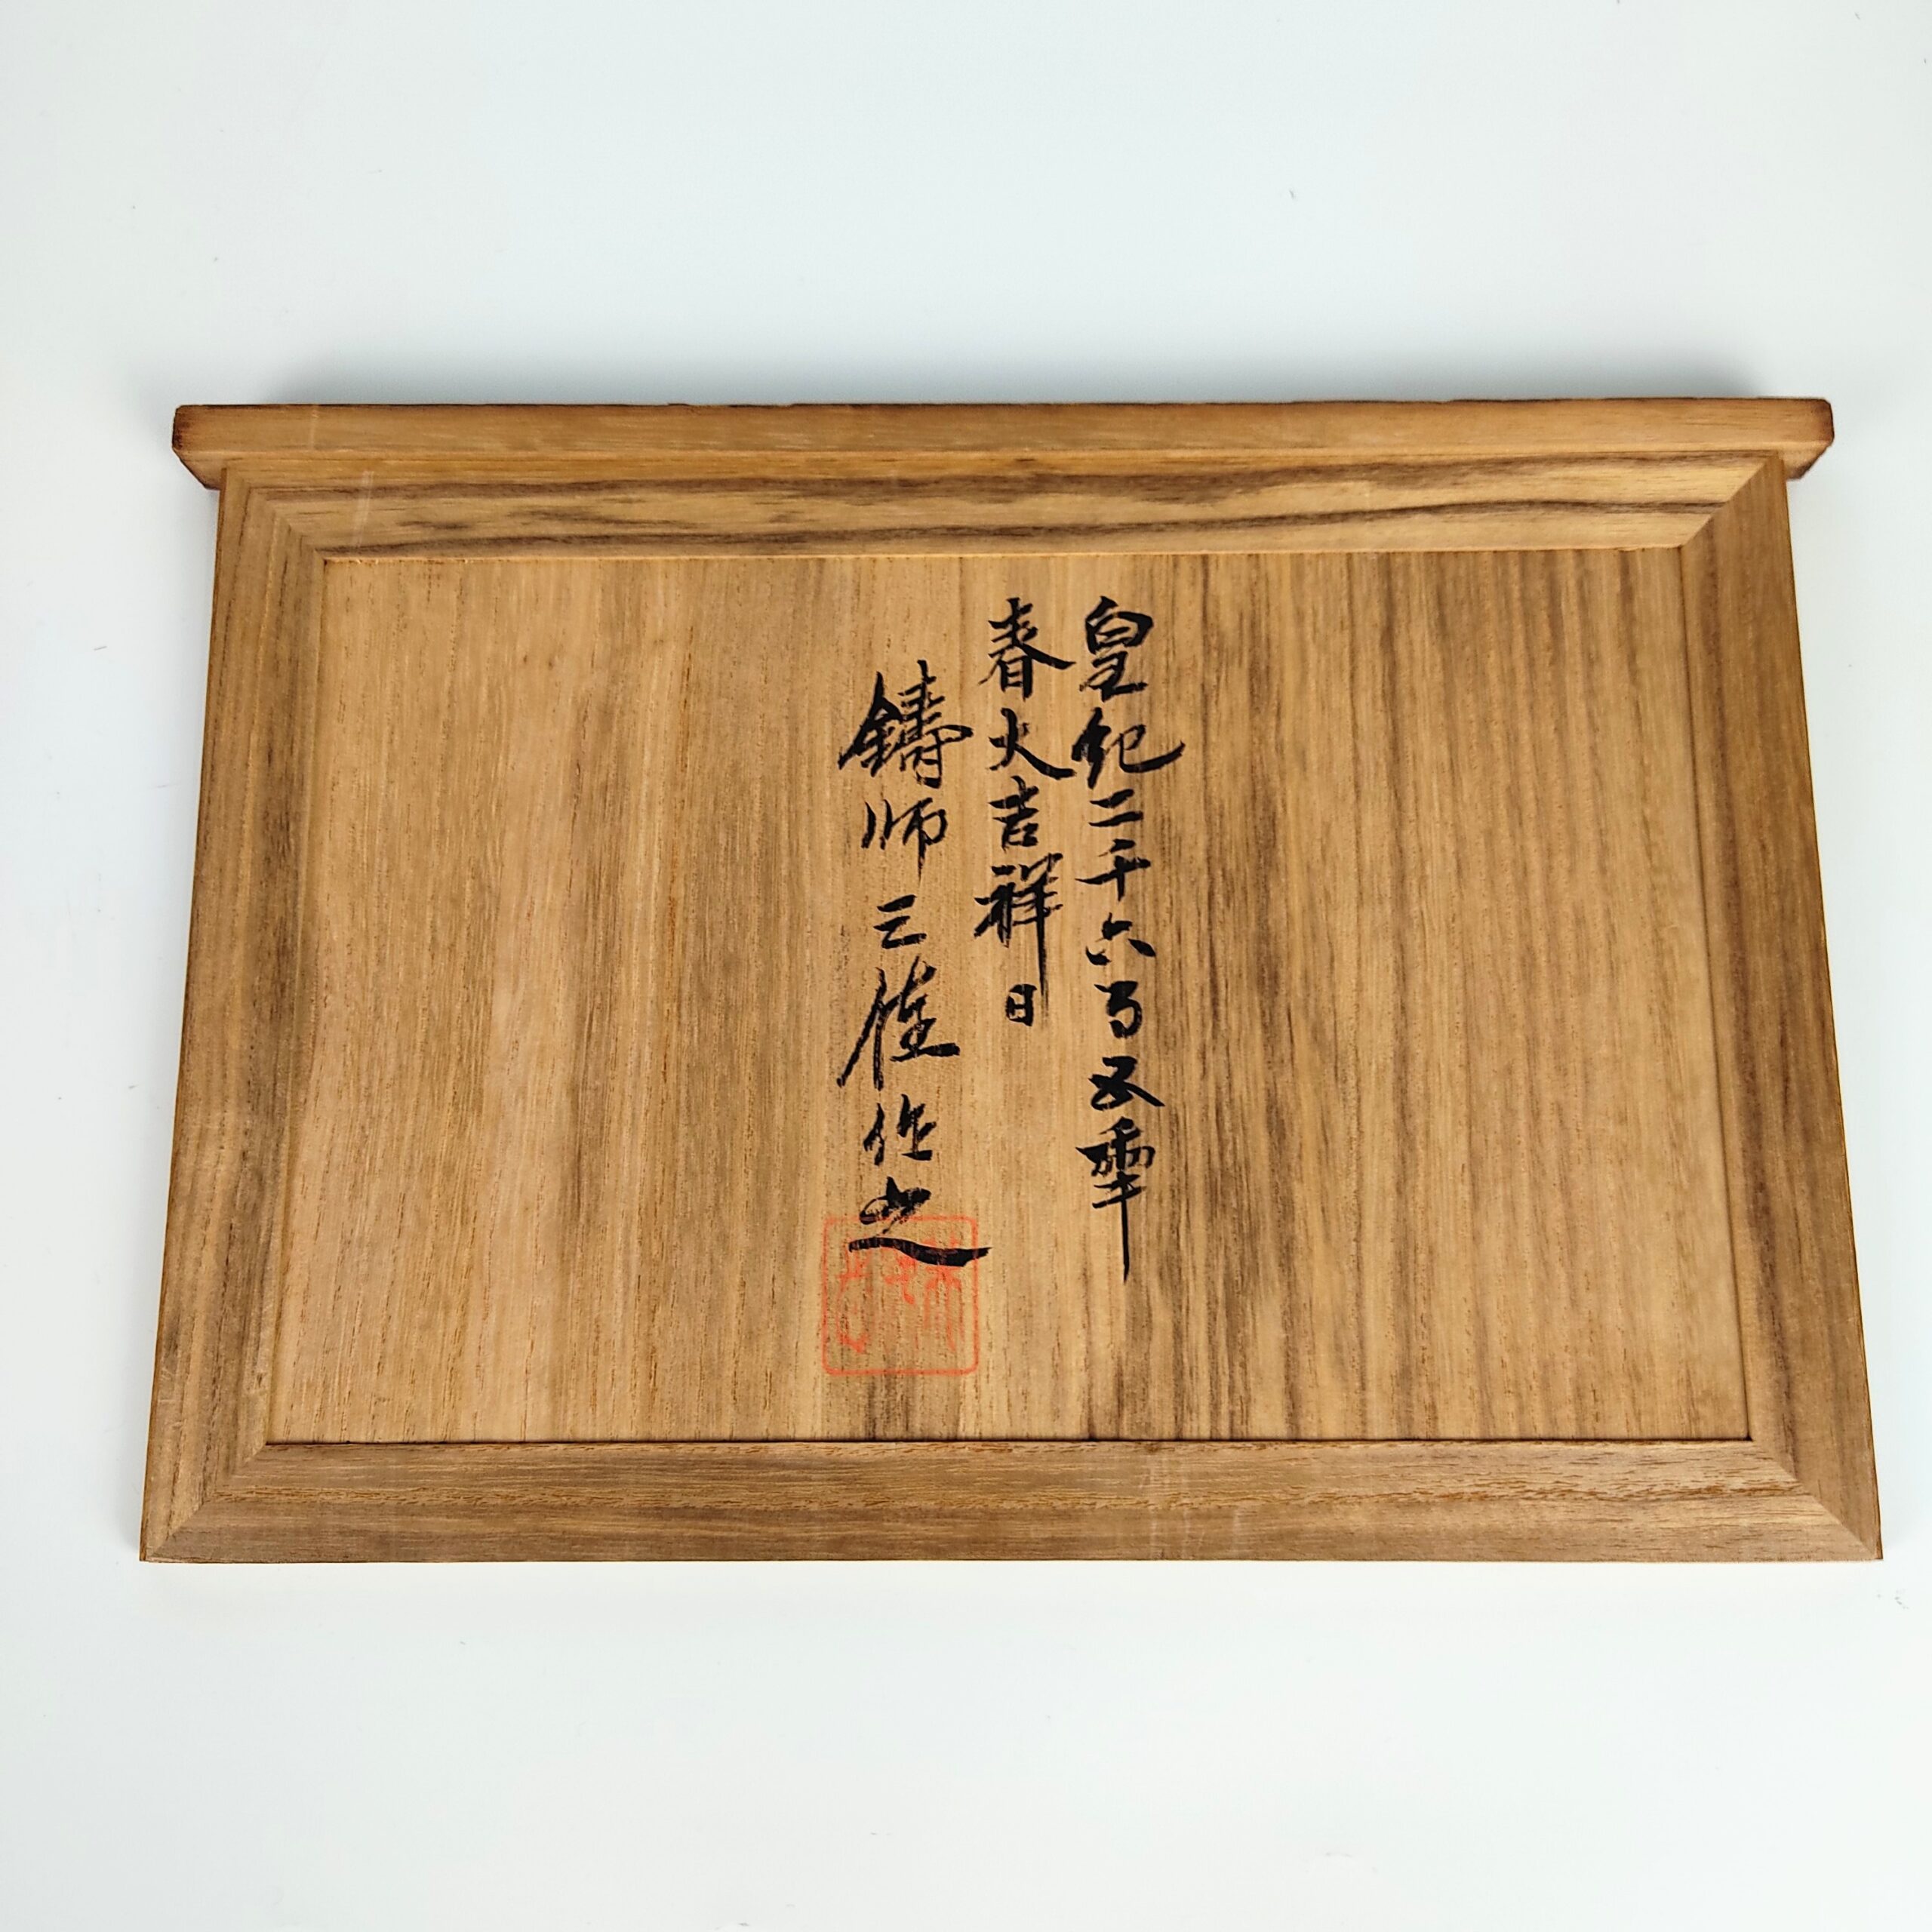 皇紀二千六百五秊
春大吉祥日
鑄師三佳作之